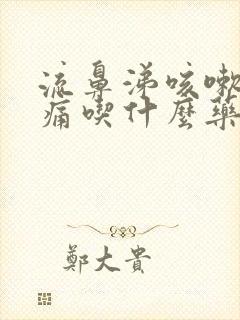 流鼻涕咳嗽
痛喫什麼藥
鄭大貴